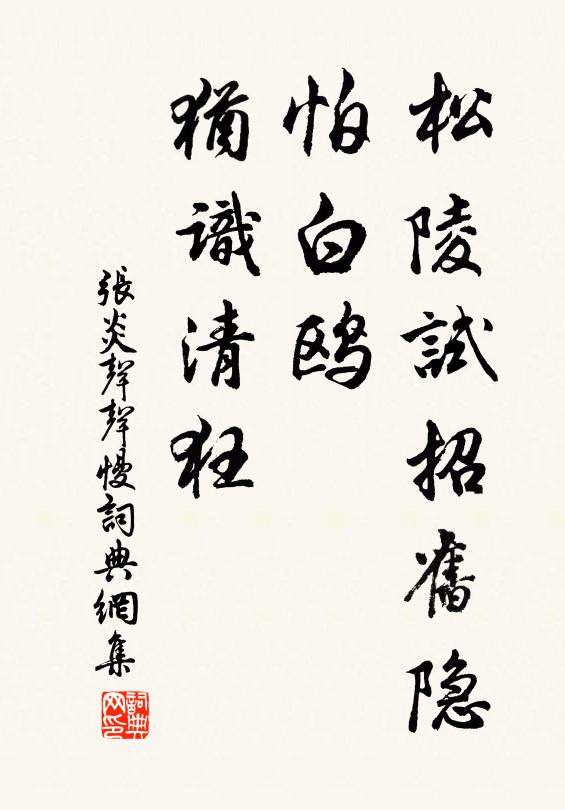 松陵試招舊隐
怕白鸥
猶識清狂
張炎聲聲慢詞典網集
詞典网印